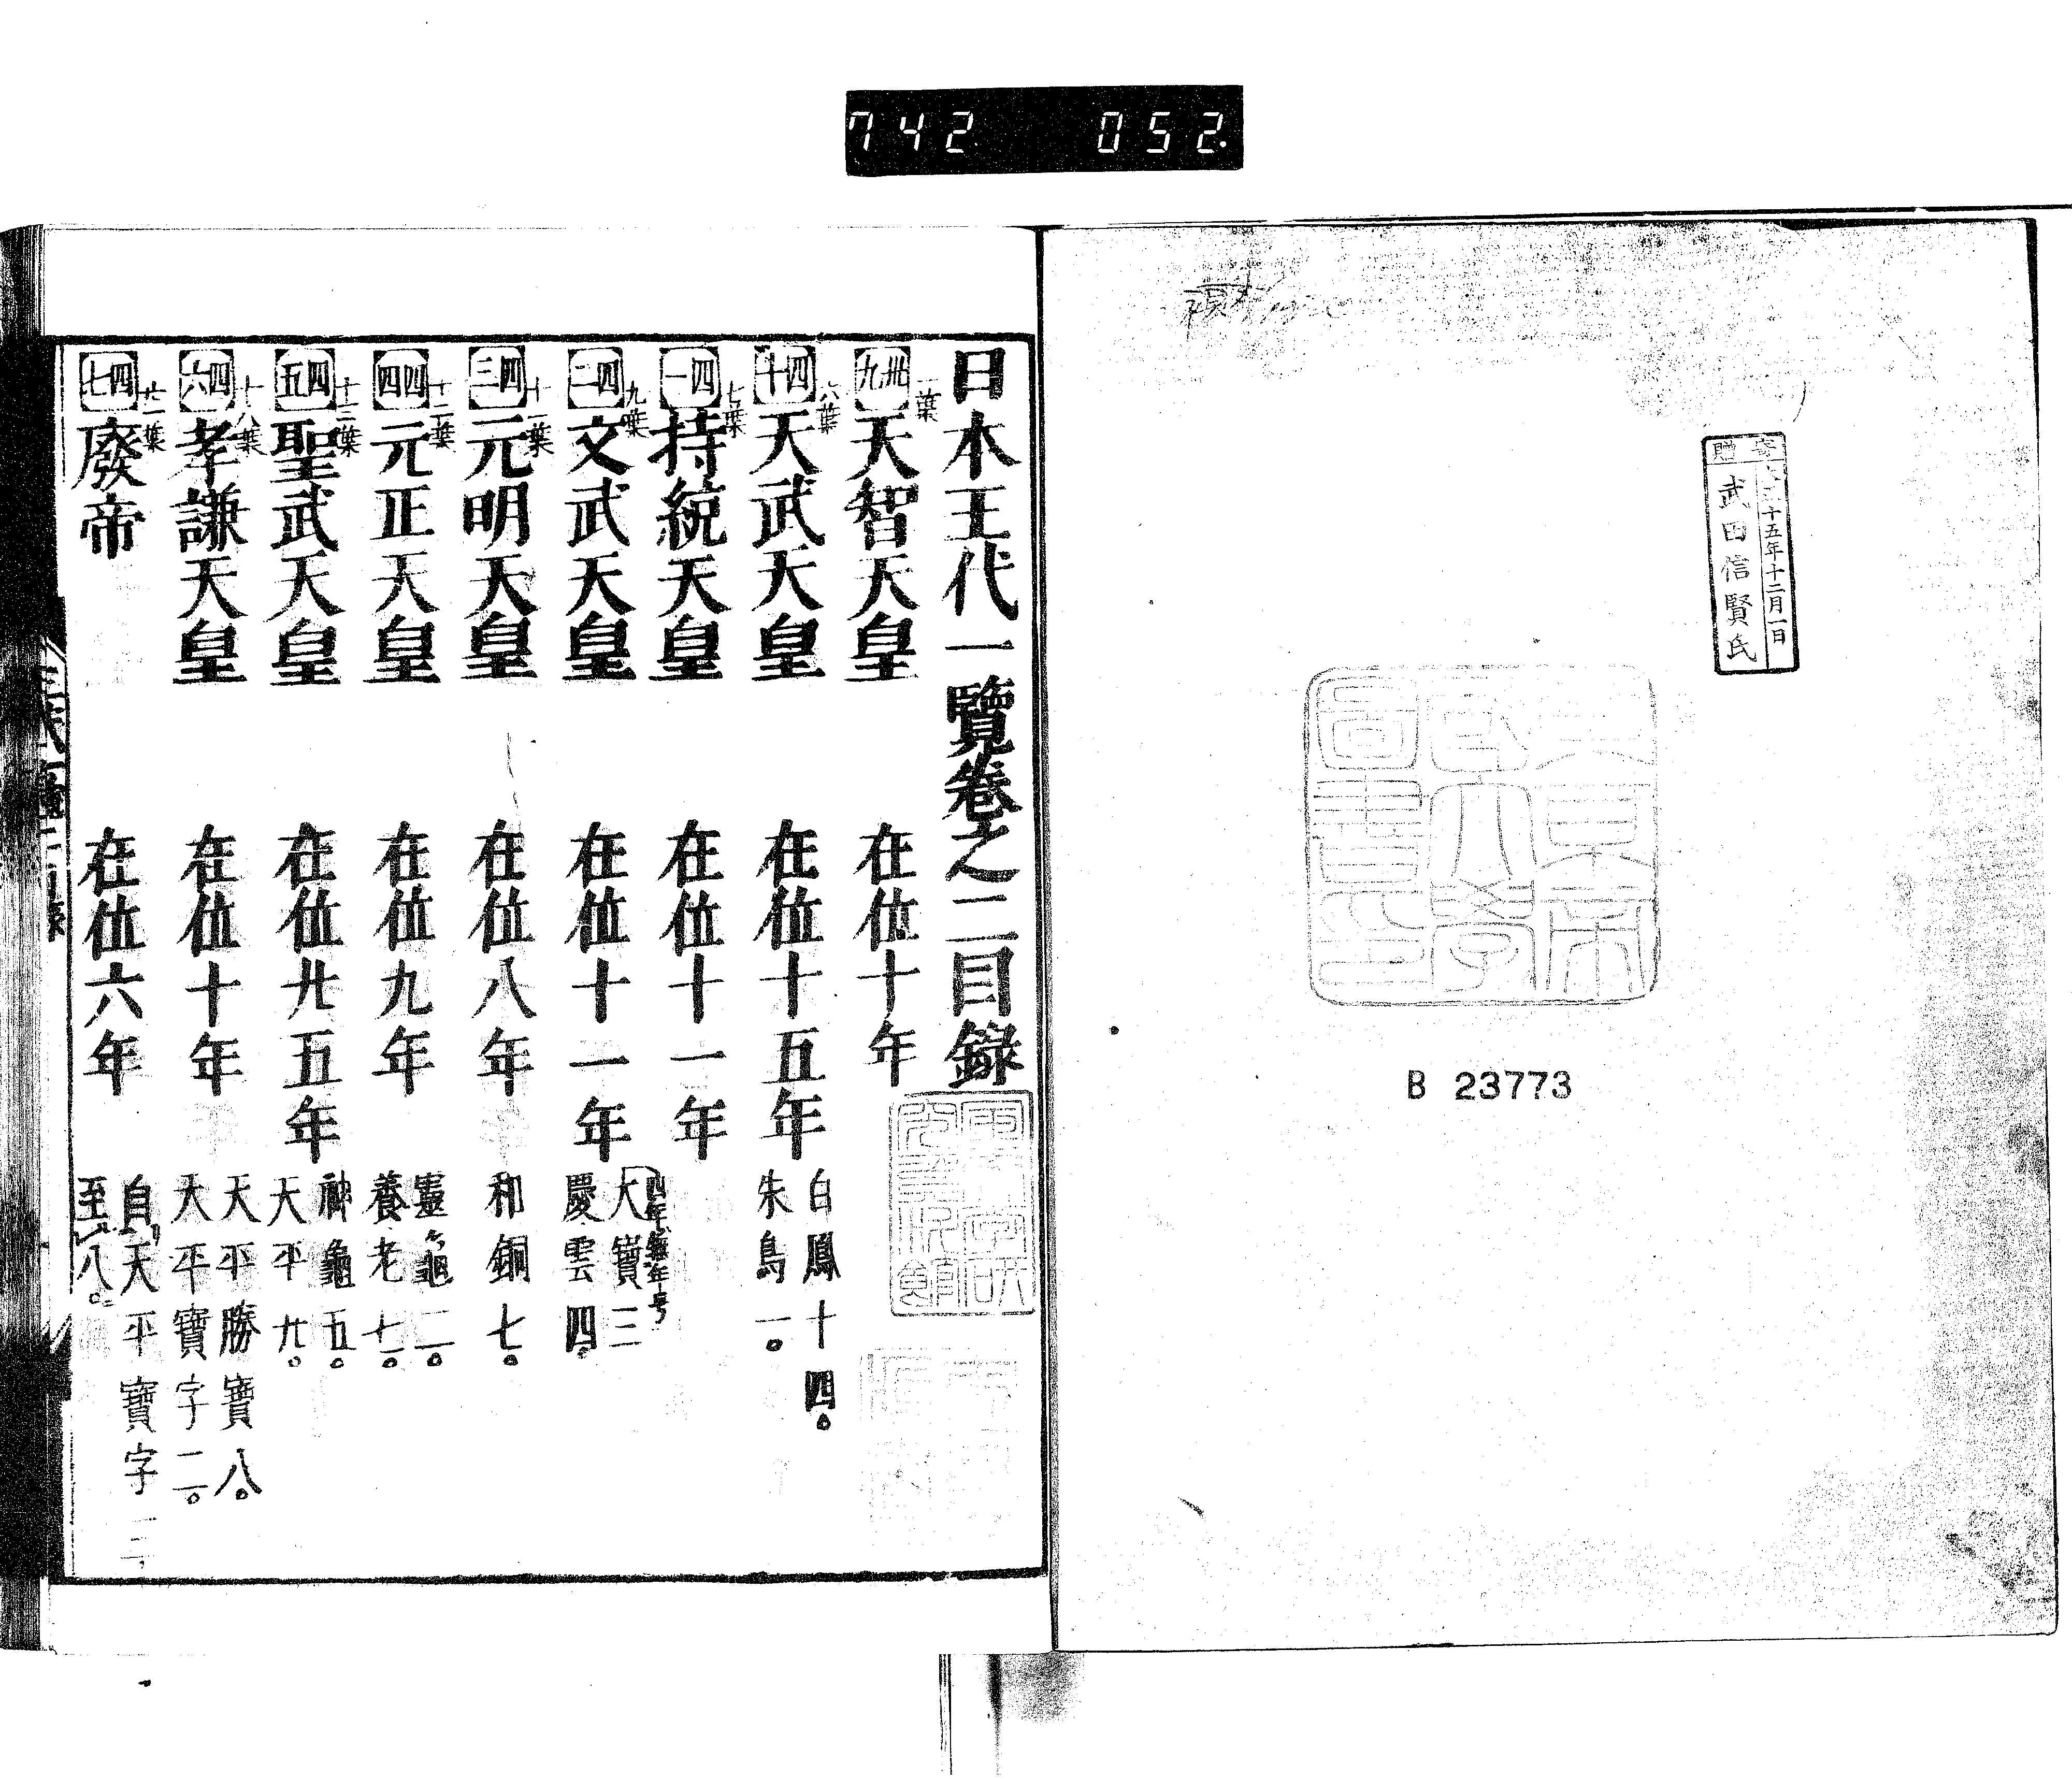 742 052
寄贈
十五年十二月一日
武田信賢氏
東京帝國大學圖書印
B 23773
日本王代一覽卷之二目錄
卅九 一葉 天智天皇 在位十年
四十 六葉 天武天皇 在位十五年 白鳳十四。 朱鳥一。
四一 七葉 持統天皇 在位十一年
四二 九葉 文武天皇 在位十一年 四年無年号 大寶三 慶雲四。
四三 十一葉 元明天皇 在位八年 和銅七。
四四 十二葉 元正天皇 在位九年 靈龜二。 養老七。
四五 十三葉 聖武天皇 在位廿五年 神龜五。 天平廿。
四六 十八葉 孝謙天皇 在位十年 天平勝寶八。 天平寶字二。
四七 廿一葉 廢帝 在位六年 自天平寶字三 至八。